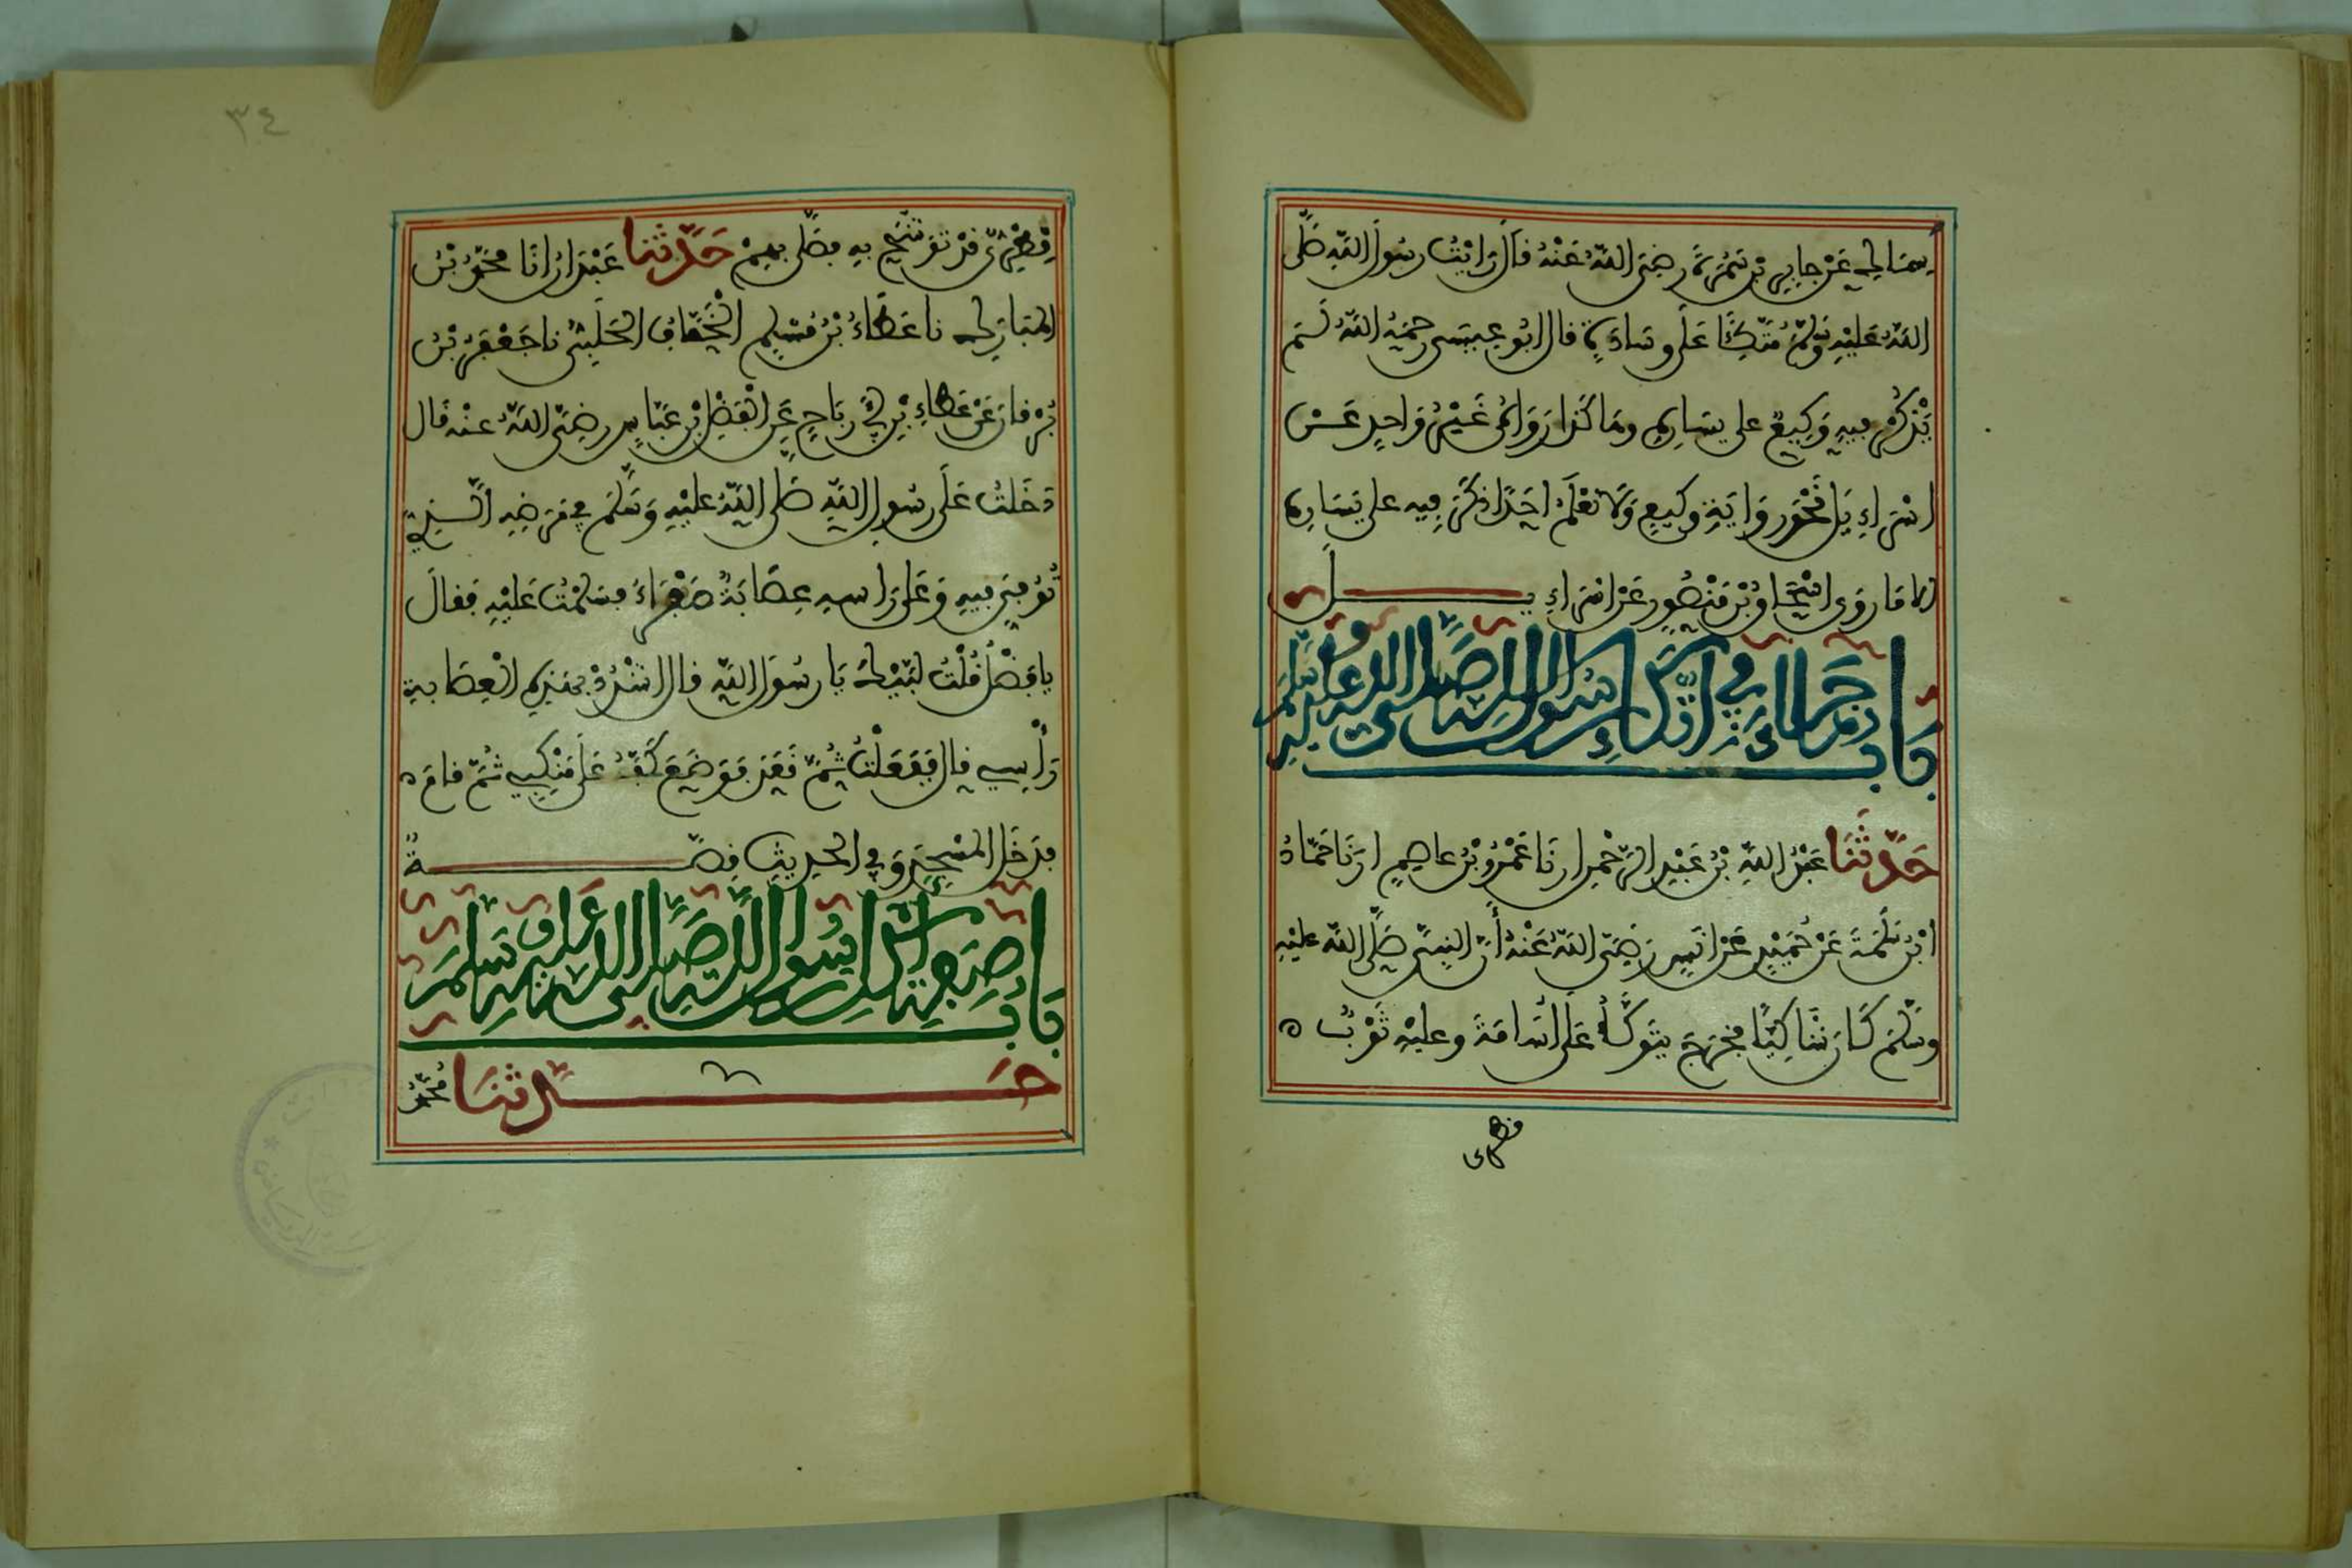 سماك عن جابر بن سمرة رضي الله عنه قال رايت رسول الله صلى
الله عليه وسلم متكئا على وسادة قال ابو عيسى رحمه الله لم
يذكر فيه وكيع على يساره وهاكذا روى غير واحد عن
اسراءيل نحو رواية وكيع ولا نعلم احدا ذكر فيه على يساره
الا ما روى اسحاق بن منصور عن اسراءيل
باب ما جاء في اتكاء رسول الله صلى الله عليه وسلم
حدثنا عبد الله بن عبد الرحمن انا عمرو بن عاصم انا حماد
ابن سلمة عن حميد عن انس رضي الله عنه أن النبي صلى الله عليه
وسلم كان شاكيا فخرج يتوكأ على أسامة وعليه ثوب ه
قطرى
٣٤
قطري قد توشح به فصلى بهم حدثنا عبد الله انا محمد بن
المبارك نا عطاء بن مسلم الخفاف الحلبي نا جعفر بن
برقان عن عطاء بن أبي رباح عن الفضل بن عباس رضي الله عنه قال
دخلت على رسول الله صلى الله عليه وسلم في مرضه الذي
توفي فيه وعلى راسه عصابة صفراء فسلمت عليه فقال
يا فضل قلت لبيك يا رسول الله قال اشدد بهذه العصابة
رأسي قال ففعلت ثم قعد فوضع كفه على منكبي ثم قام ه
فدخل المسجد وفي الحديث قصة
باب صفة أكل رسول الله صلى الله عليه وسلم
حدثنا محمد